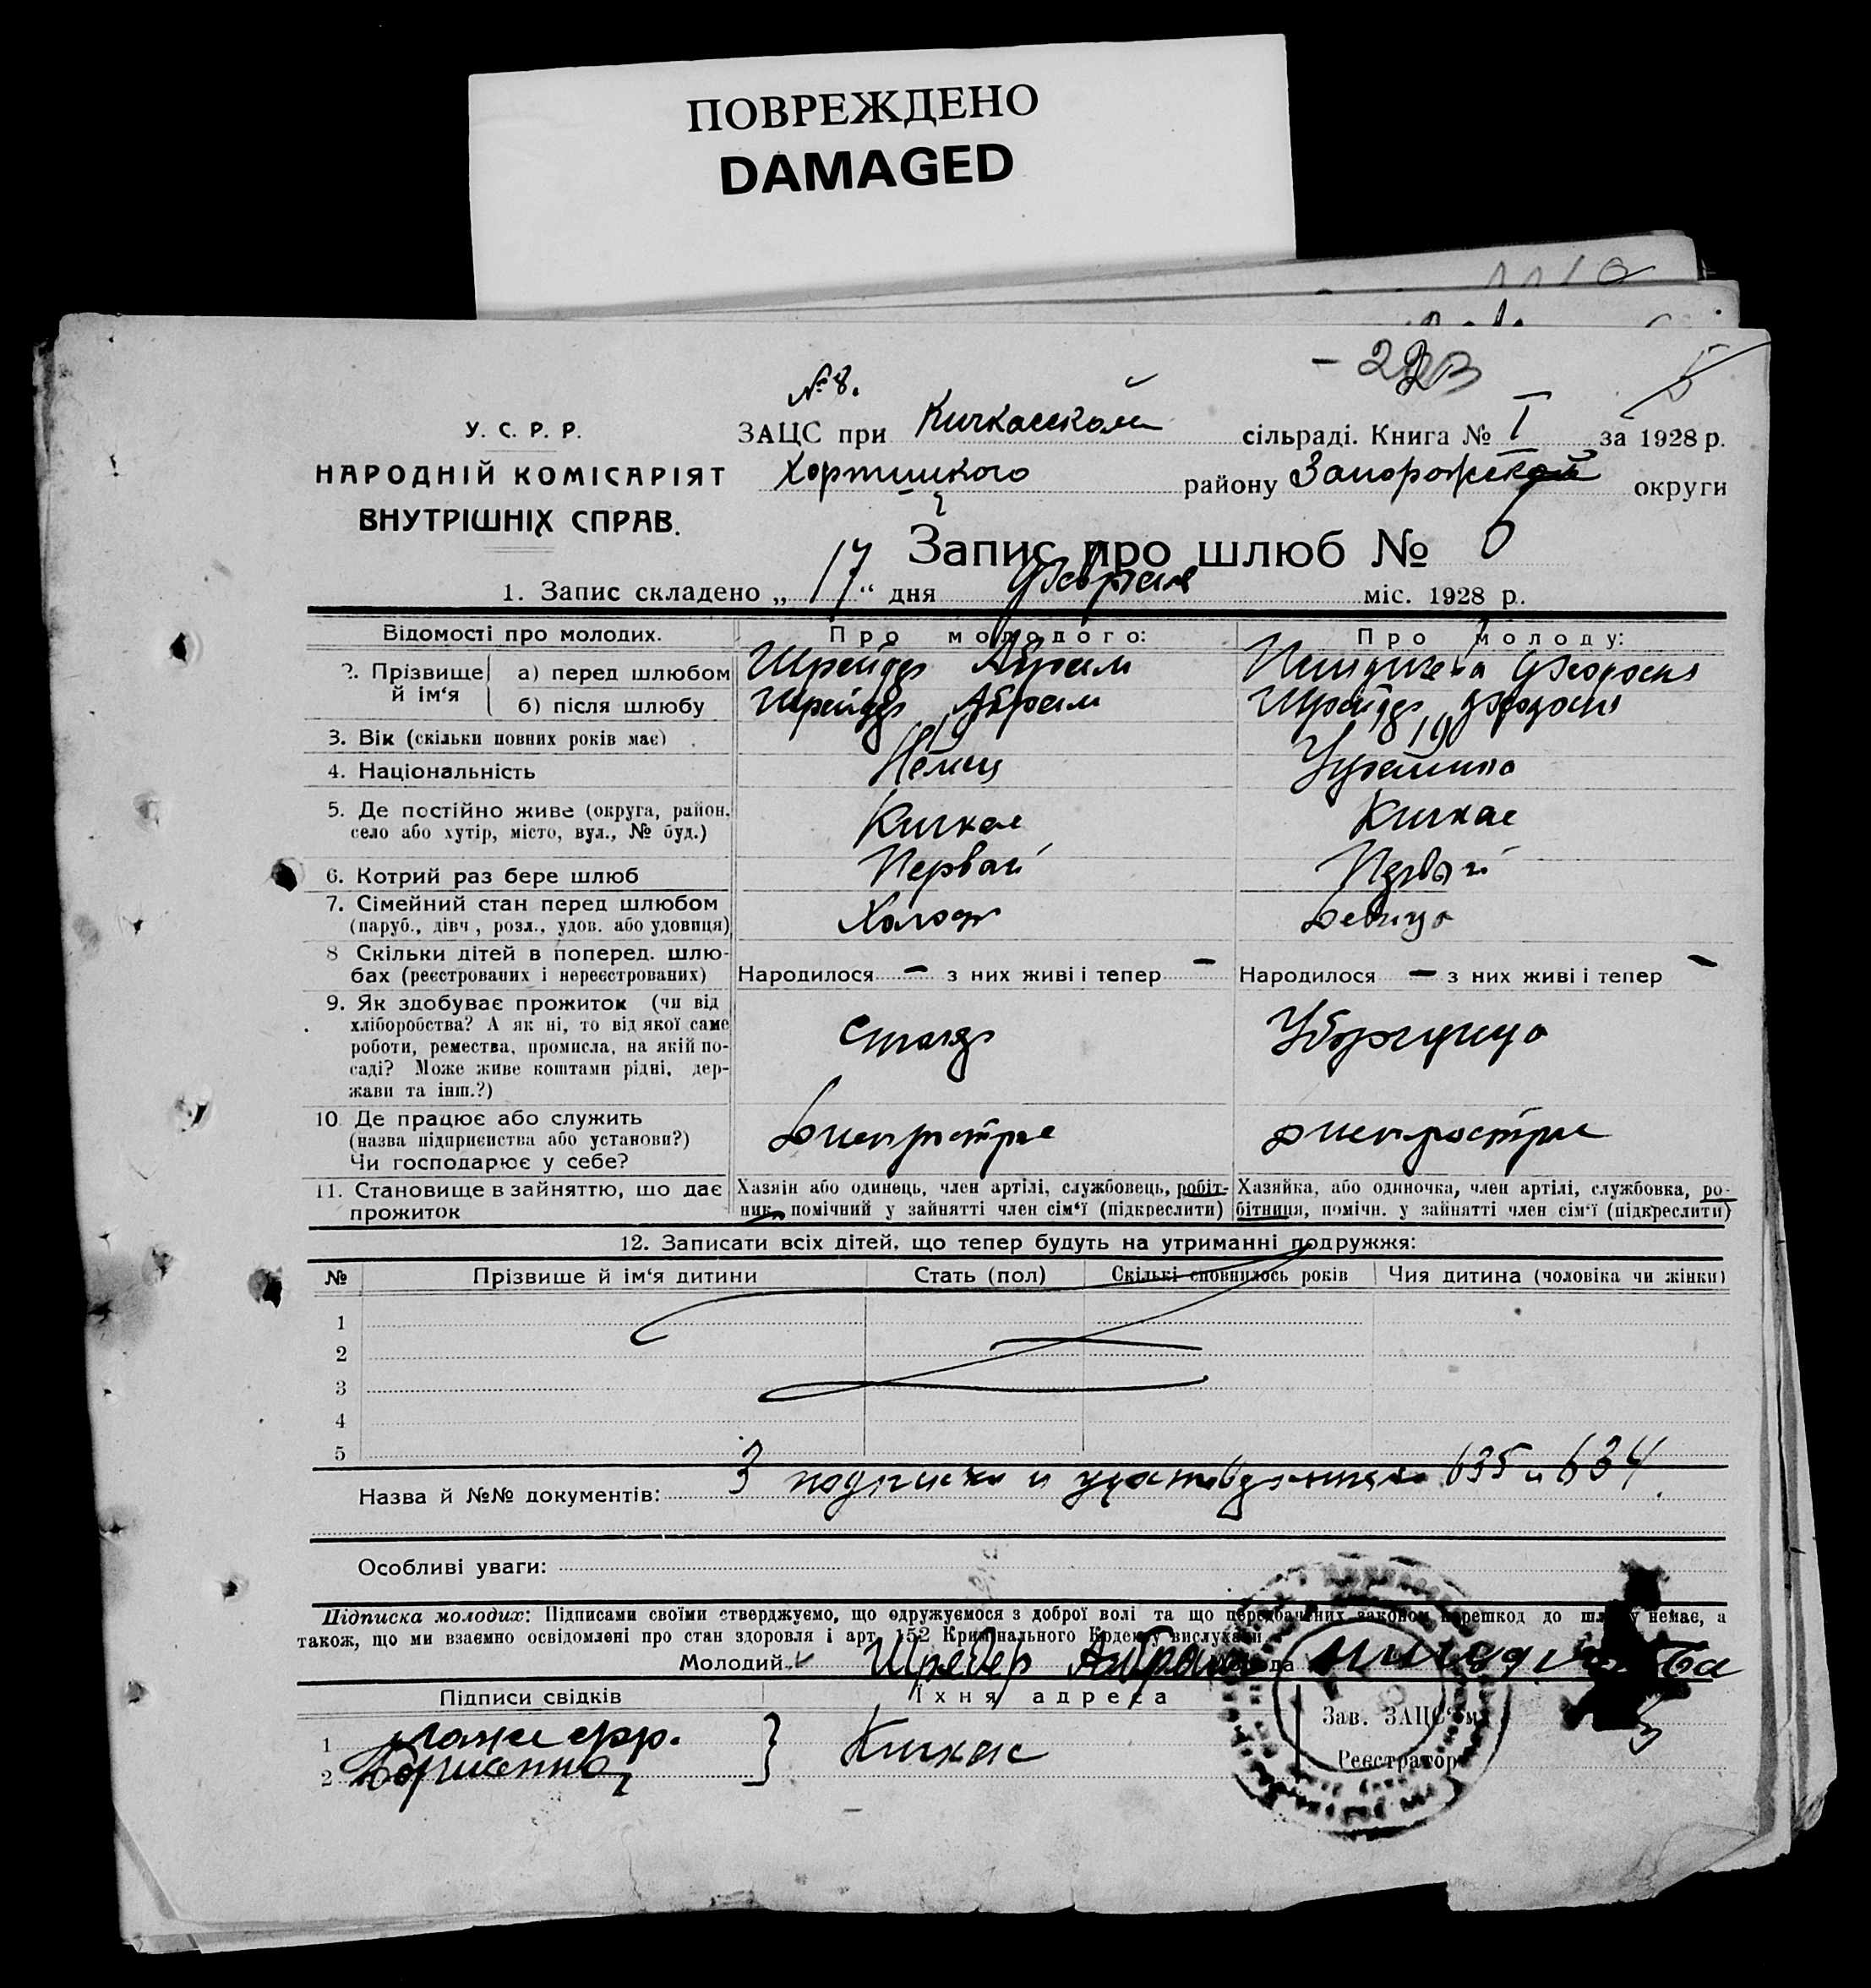 ПОВРЕЖДЕНО
DAMAGED
№ 8.
У. С. Р. Р.
НАРОДНІЙ КОМІСАРІЯТ
ВНУТРІШНІХ СПРАВ.
ЗАЦС при Кичкасском сільраді. Книга № I за 1928 р.
Хортицкого району Запорожской округи
Запис про шлюб № 6
1. Запис складено „ 17 “ дня Февраля міс. 1928 р.
Відомості про молодих. Про молодого: Про молоду:
2. Прізвище й ім‘я а) перед шлюбом Шрейдер Абрам Феодосия
б) після шлюбу Шрейдер Абрам Шрейдер Феодосия
3. Вік (скільки повних років має) 19
4. Національність Немец Украинка
5. Де постійно живе (округа, район, Кичкас Кичкас
село або хутір, місто, вул., № буд.)
6. Котрий раз бере шлюб Первый Первый
7. Сімейний стан перед шлюбом Холост Девица
(паруб., дівч., розл., удов. або удовиця)
8 Скільки дітей в поперед. шлю-
бах (реєстрованих і нереєстрованих) Народилося — з них живі і тепер — Народилося — з них живі і тепер —
9. Як здобуває прожиток (чи від
хліборобства? А як ні, то від якої саме Столяр Уборщица
роботи, ремества, промисла, на якій по-
саді? Може живе коштами рідні, дер-
жави та інш.?)
10. Де працює або служить
(назва підприємства або установи?) Днепрострое Днепрострое
Чи господарює у себе?
11. Становище в зайняттю, що дає Хазяїн або одинець, член артілі, службовець, робіт- Хазяйка, або одиночка, член артілі, службовка, ро-
прожиток ник, помічний у зайнятті член сім‘ї (підкреслити) бітниця, помічн. у зайнятті член сім‘ї (підкреслити)
12. Записати всіх дітей, що тепер будуть на утриманні подружжя:
№ Прізвище й ім‘я дитини Стать (пол) Скількі сповнилось років Чия дитина (чоловіка чи жінки)
1
2
3
4
5
Назва й №№ документів: 3 подписки и удостоверения 635 и 634.
Особливі уваги:
Підписка молодих: Підписами своїми стверджуємо, що одружуємося з доброї волі та що передбачених законом перешкод до шлюбу немає, а
також, що ми взаємно освідомлені про стан здоровля і арт. 152 Кримінального Кодексу вислухали
Молодий Шредер Абрам
Підписи свідків Їхня адреса
1
2 Кичкас
Зав. ЗАЦС‘ом
Реєстратор